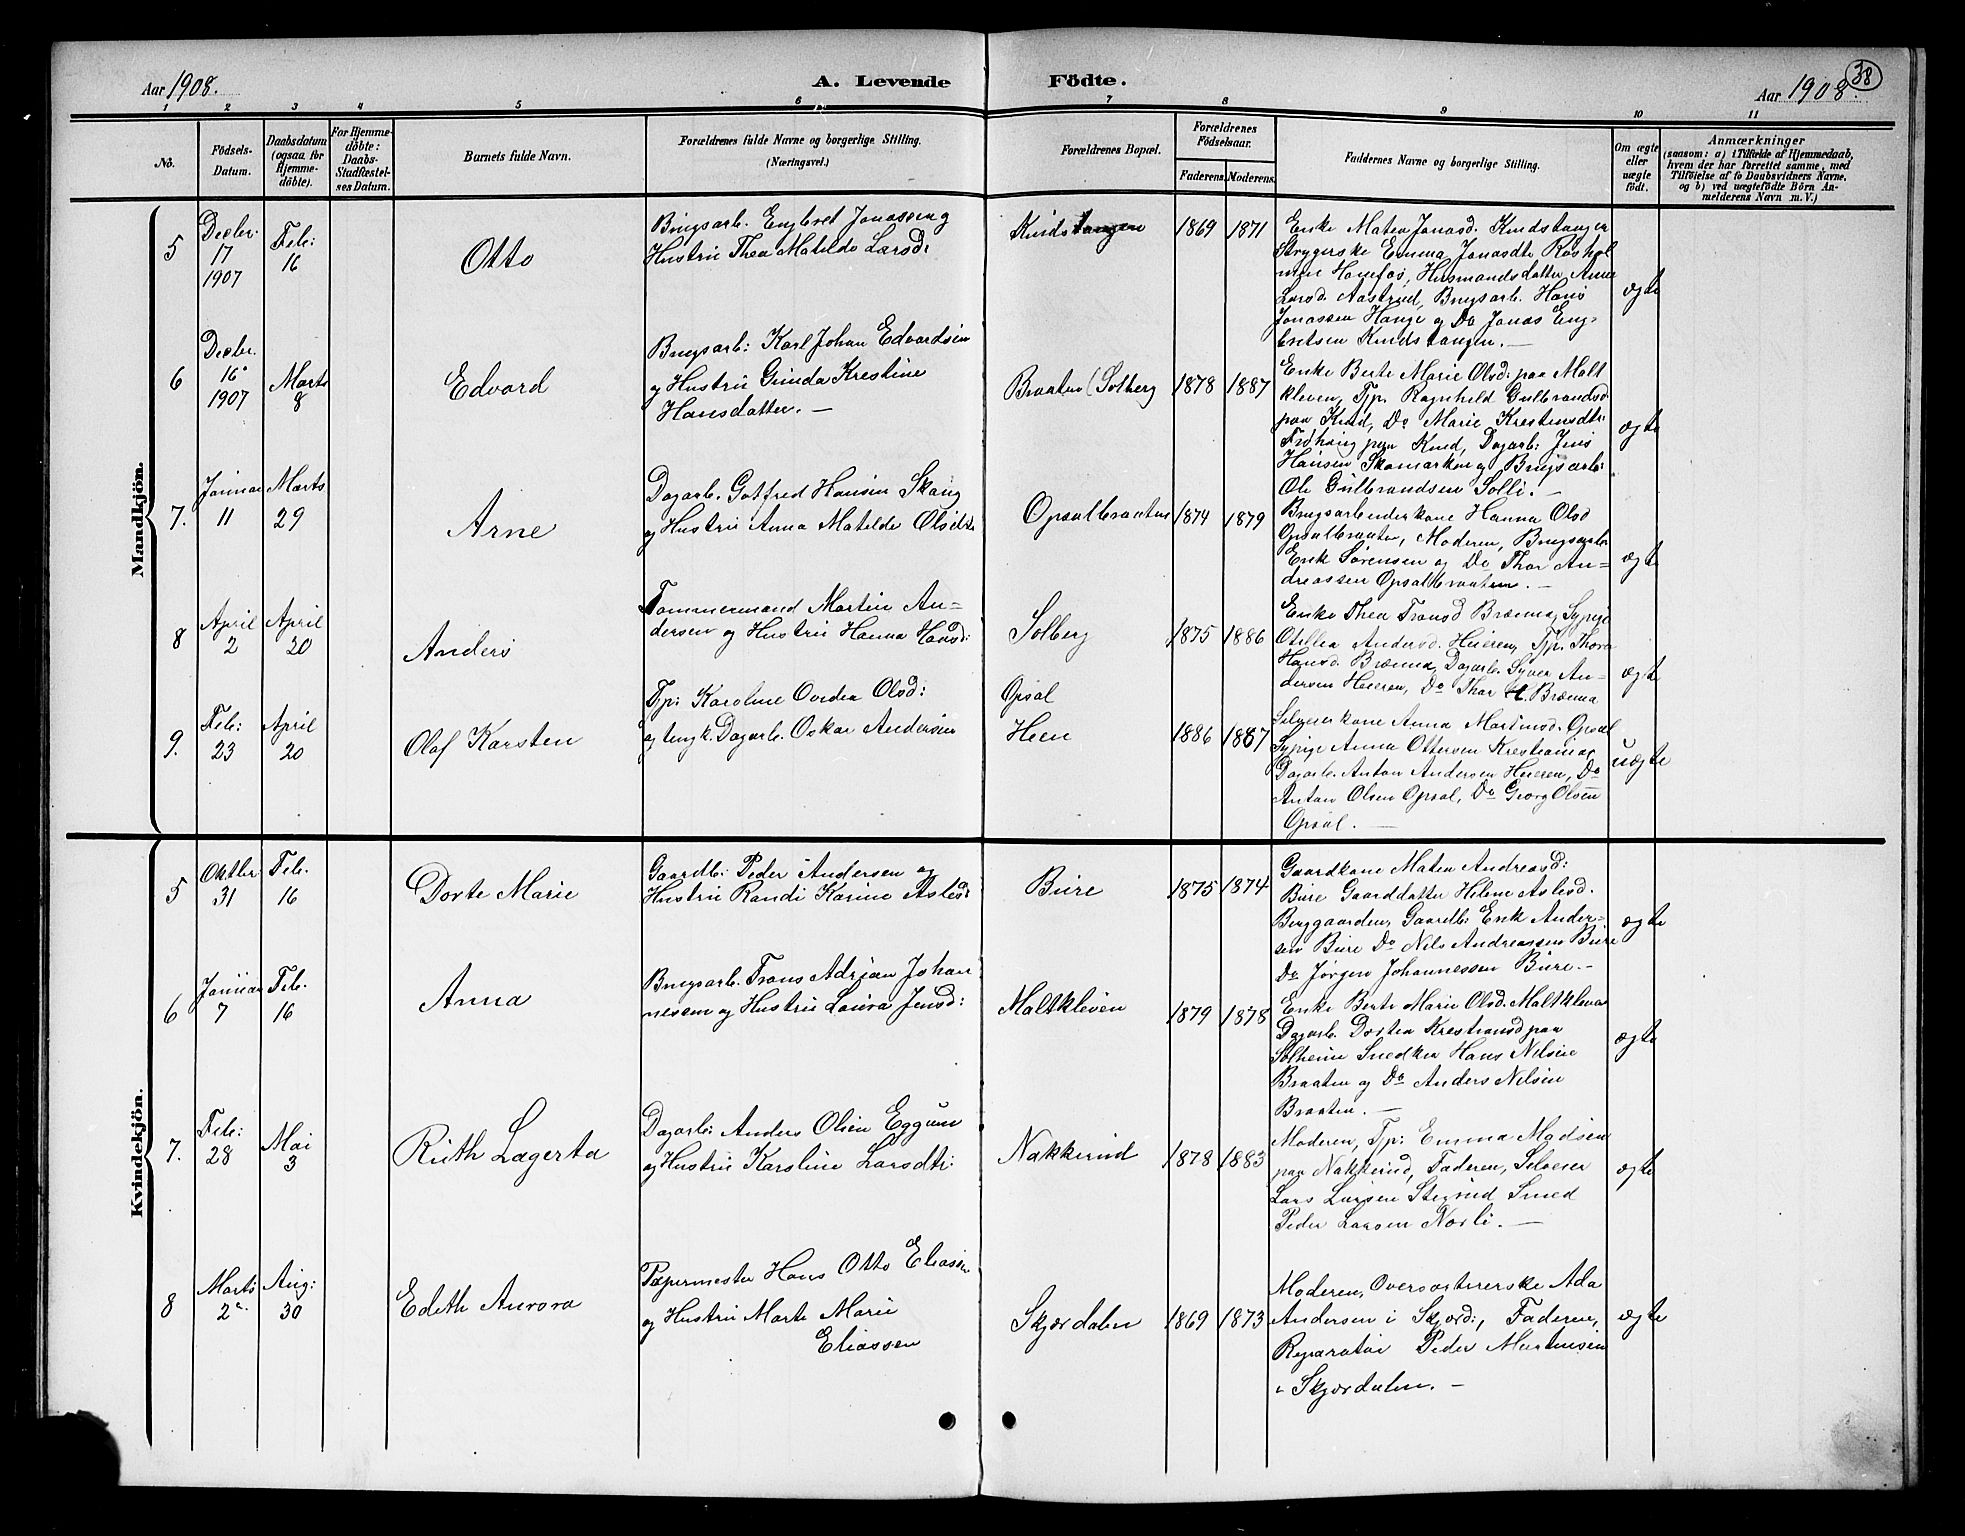 Aar 1908.
A. Levende Födte.
Aar 1908.
38
1 2 3 4 5 6 7 8 9 10 11
No.
Födsels-
Datum.
Daabsdatum
(ogsaa for
Hjemme-
döbte).
For Hjemme-
döbte:
Daabs-
Stadfæstel-
ses Datum.
Barnets fulde Navn.
Forældrenes fulde Navne og borgerlige Stilling.
(Næringsvei.)
Forældrenes Bopæl.
Forældrenes
Födselsaar.
Faderens. Moderens.
Faddernes Navne og borgerlige Stilling.
Om ægte
eller
uægte
födt.
Anmærkninger
(saasom: a) i Tilfælde af Hjemmedaab,
hvem der har forrettet samme, med
Tilföielse af to Daabsvidners Navne,
og b) ved uægtefödte Börn An-
melderens Navn m. V.)
Mandkjön.
5
Decbr.
17
1907
Feb:
16
Otto
Brugsarb. Engbret Jonassen og
Hustru Thea Matilde Larsd:
Kindstangen
1869 1871
Enke Matea Jonasd. Kindstangen
Strygerske Emma Jonasdtr Roshol
men Hønefos, Husmandsdatter Anne
Larsd. Aastrud, Brugsarb. Hans
Jonassen Hange og Do Jonas Eng-
bretsen Kindstangen. —
ægte
6
Decbr.
16
1907
Marts
8
Edvard
Brugsarb: Karl Johan Edvardsen
og Hustru Gunda Kristine
Hansdatter. —
Braaten (Solberg
1878 1887
Enke Berte Marie Olsd: paa Malt
kleven, Tjp. Ragnhild Gulbrandsd.
paa Kind, Do Marie Krestensdtr
paa Kind, Dagarb: Jens
Hansen Skamarken og Brugsarb:
Ole Gulbrandsen Solli. —
ægte
7.
Januar
11
Marts
29
Arne
Dagarb. Gotfred Hansen Skaug
og Hustru Anna Matilde Olsdtr
Opsalbraaten
1874 1879
Brugsarbeiderkone Hanna Olsd
Opsalbraaten, Moderen, Brugsarb.
Erik Sørensen og Do Thor An-
dreassen Opsalbraaten. —
ægte
8
April
2
April
20
Anders
Tømmermand Martin An-
dersen og Hustru Hanna Hansd:
Solberg
1875 1886
Enke Thea Fransd Brænna, Sypige
Otillia Andersd. Heieren, Tjp. Thora
Hansd. Brænna, Dagarb. Syver An-
dersen Heieren, Do Thor H. Brænna
ægte
9.
Feb:
23
April
20
Olaf Karsten
Tjp: Karoline Ovedia Olsd:
og Ungk. Dagarb. Oskar Andersen
Opsal
Heen
1886 1887
Seleierkone Anna Martinsd. Opsal
Sypige Anna Ottersen Kristiania,
Dagarb. Anton Andersen Heieren, Do
Anton Olsen Opsal, Do Georg Olsen
Opsal. —
uægte
Kvindekjön.
5
Oktbr:
31
Feb.
16
Dorte Marie
Gaardb: Peder Andersen og
Hustru Randi Karine Aslesd:
Bure
1875 1874
Gaardkone Matea Andreasd:
Bure Gaarddatter Helene Aslesd.
Berggaarden, Gaardb: Erik Ander-
sen Bure Do Nils Andreassen Bure
Do Jørgen Johannessen Bure. —
ægte
6
Januar
7
Feb.
16
Anna
Brugsarb. Frans Adrian Johan
nesen og Hustru Laura Jensd:
Maltkleven
1879 1878
Enke Berte Marie Olsd. Maltkleven
Dagarb. Dortea Krestiansd paa
Solheim Snedker Hans Nilsen
Braaten og Do Anders Nilsen
Braaten. —
ægte
7.
Feb:
28
Mai
3
Ruth Lagerta
Dagarb: Anders Olsen Eggum
og Hustru Karoline Larsdtr:
Nakkerud
1878 1883
Moderen, Tjp: Emma Madsen
paa Nakkerud, Faderen, Seleier
Lars Larsen Stegrud Smed
Peder Larsen Norli. —
ægte
8
Marts
2
Aug:
30
Edith Aurora
Papermester Hans Otto Eliassen
og Hustru Marte Marie
Eliassen
Skjærdalen
1869 1873
Moderen, Ada
Andersen i Skjærd:, Faderen,
Reparatør Peder Martinsen
i Skjærdalen. —
ægte